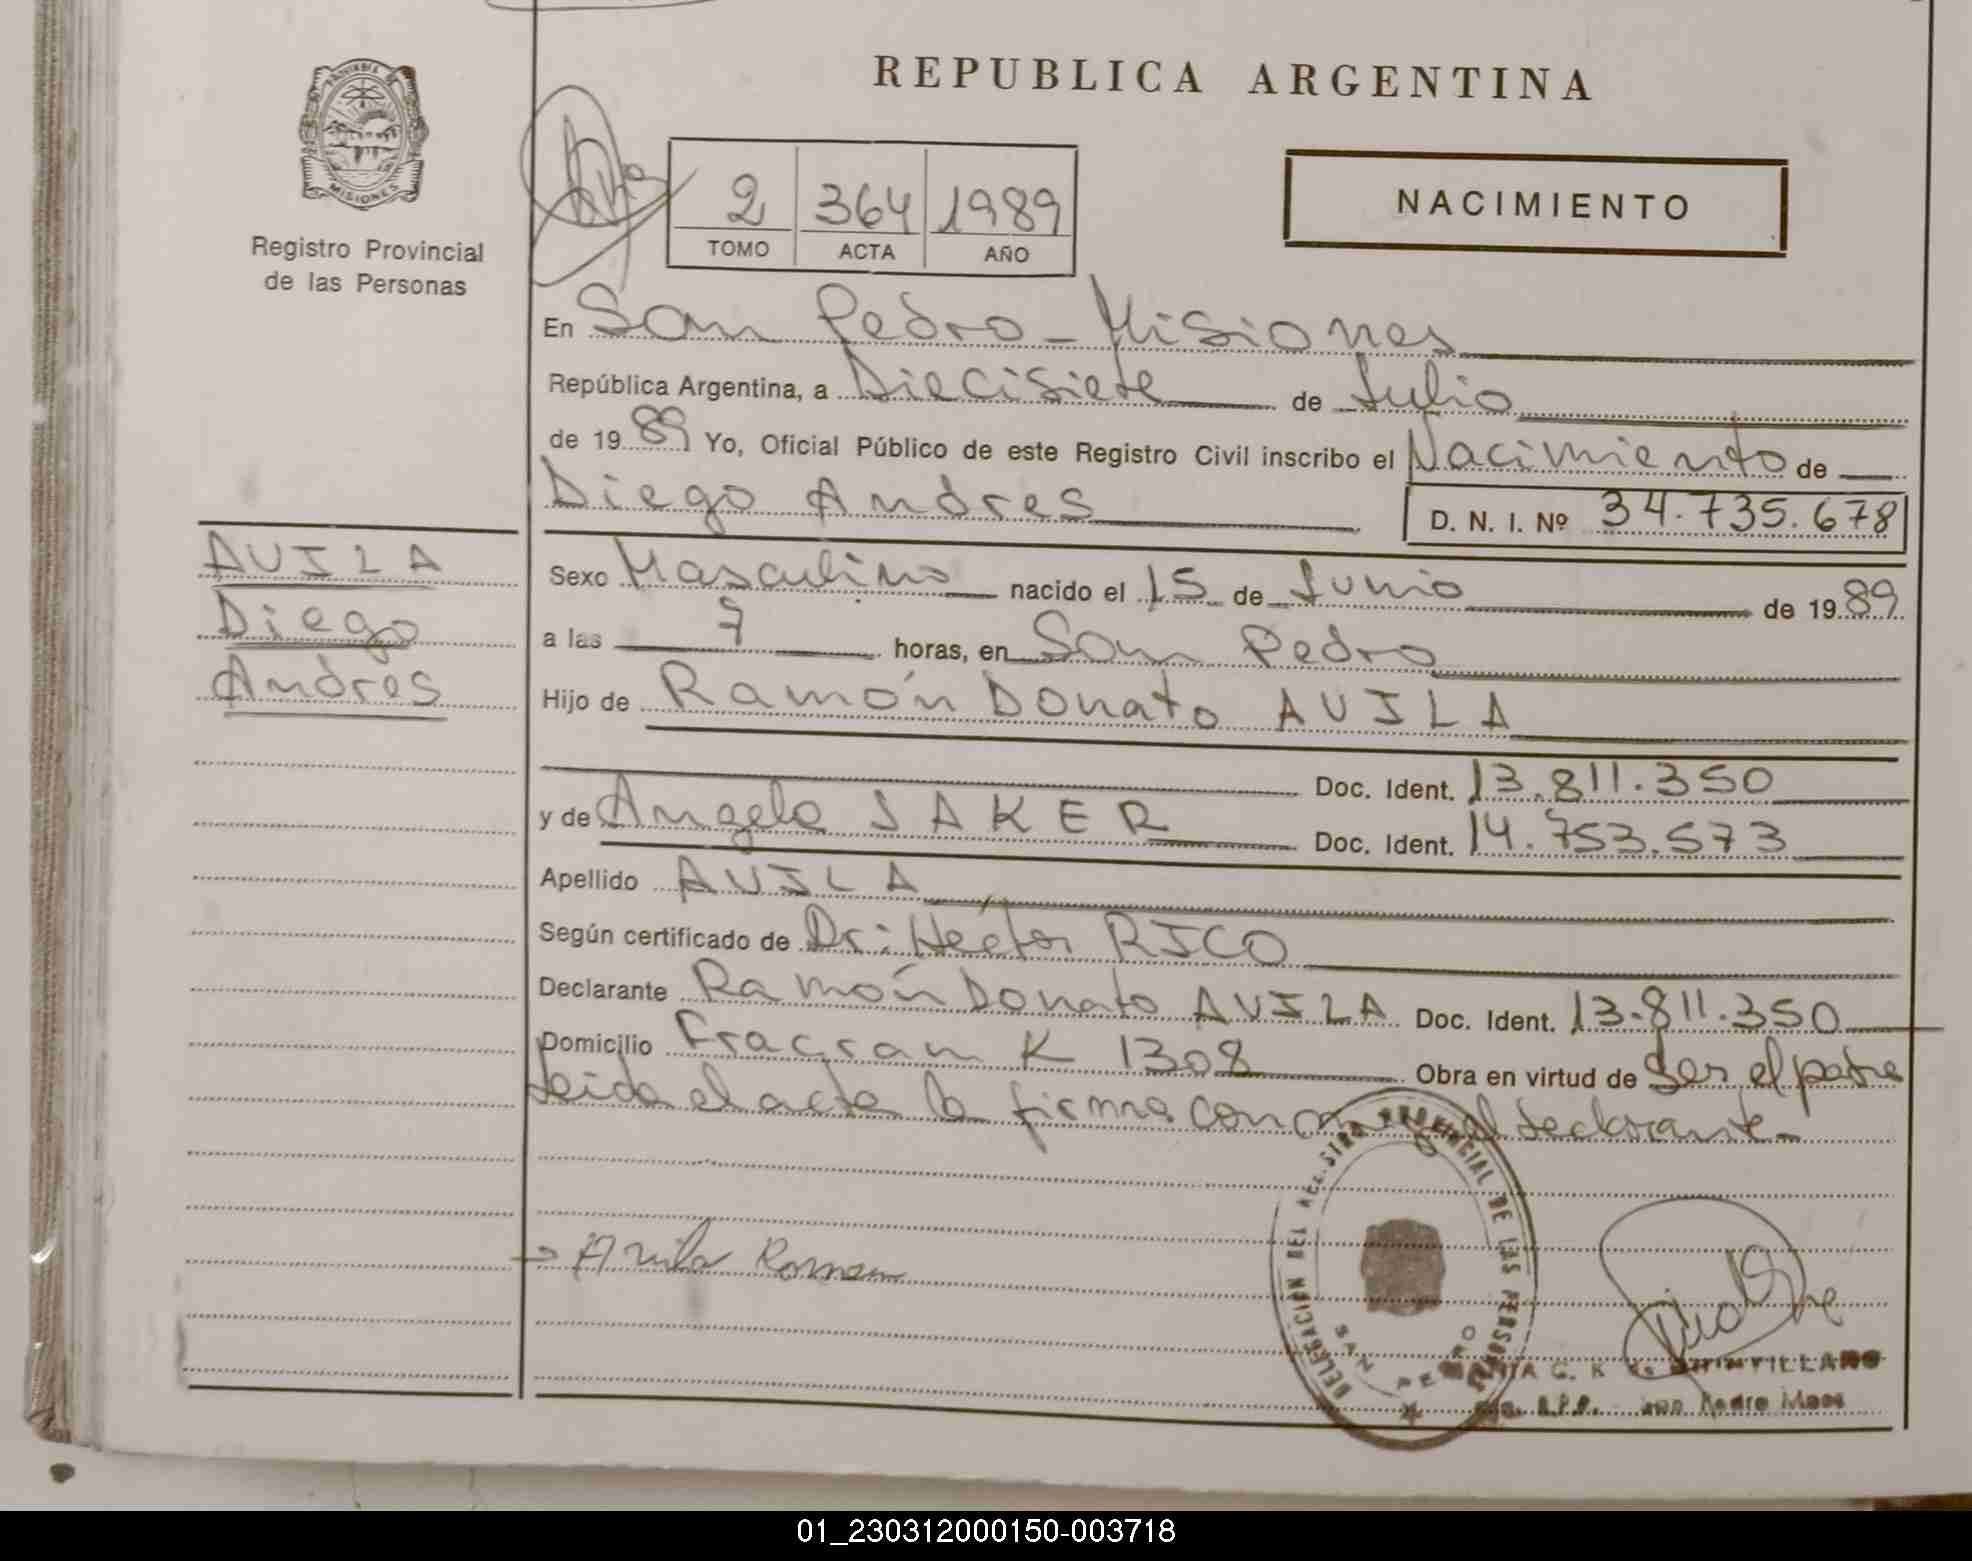 REPUBLICA ARGENTINA
PROVINCIA DE
MISIONES
Registro Provincial
de las Personas
2 364 1989
TOMO ACTA AÑO
NACIMIENTO
En San Pedro - Misiones
República Argentina, a Diecisiete de Julio
de 1989 Yo, Oficial Público de este Registro Civil inscribo el Nacimiento de
Diego Andres D. N. I. Nº 34.735.678
AVILA
Diego
Andres
Sexo Masculino nacido el 15 de Junio de 1989
a las 7 horas, en San Pedro
Hijo de Ramón Donato AVILA
Doc. Ident. 13.811.350
y de Angela SAKER Doc. Ident. 14.753.573
Apellido AVILA
Según certificado de Dr: Héctor RICO
Declarante Ramón Donato AVILA Doc. Ident. 13.811.350
Domicilio Fracran K 1308 Obra en virtud de Ser el padre
Leida el acta la firma conmigo el declarante-
Avila Ramon
DELEGACION DEL REGISTRO PROVINCIAL DE LAS PERSONAS
SAN PEDRO
G. K
R.P.P. San Pedro Mnes
01_230312000150-003718